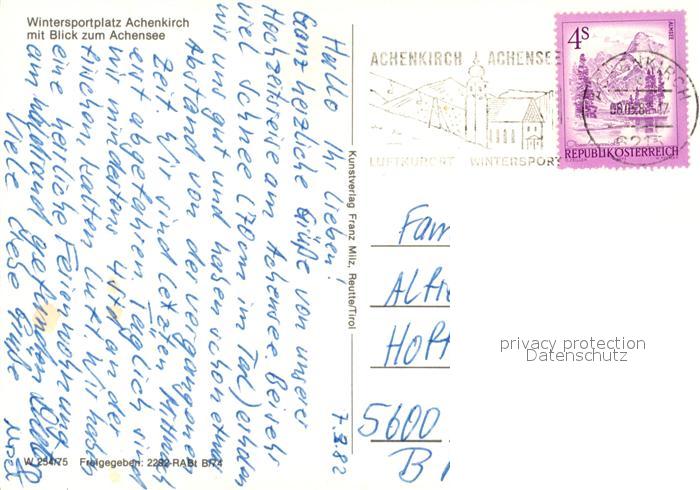 Wintersportplatz Achenkirch
mit Blick zum Achensee
ACHENKIRCH ACHENSEE
LUFTKURORT WINTERSPORT
4S
ALMSEE
REPUBLIK ÖSTERREICH
Kunstverlag Franz Milz, Reutte/Tirol
7.3.82
Hallo Ihr Lieben!
Ganz herzliche Grüße von unserer
Hochzeitsreise am Achensee. Bei sehr
viel Schnee (70cm im Tal) erholen
wir uns gut und haben schon etwas
Abstand von der vergangenen
Zeit. Wir sind letzten Mittwoch
erst abgefahren. Täglich sind
wir mindestens 4 Std an der
frischen kalten Luft. Wir haben
eine herrliche Ferienwohnung
am Waldrand gefunden.
Viele liebe Grüße
Fam
5600
privacy protection
Datenschutz
W 254/75 Freigegeben: 2292-RABt B/74